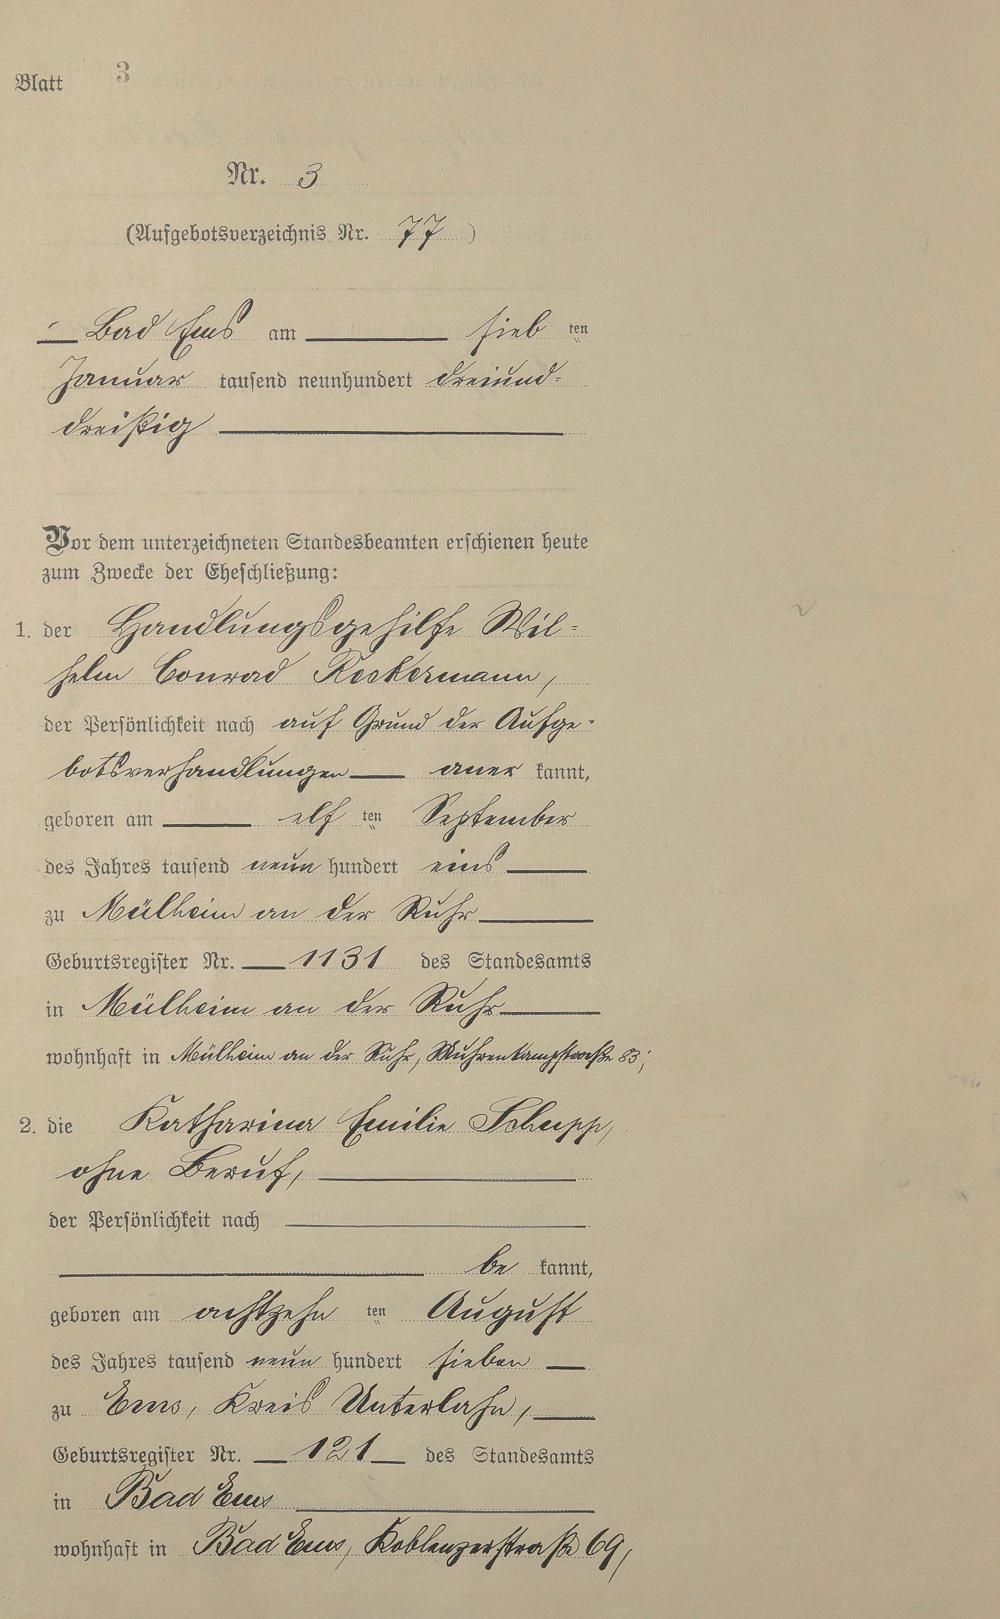 Blatt 3
Nr. 3
(Aufgebotsverzeichnis Nr. 77)
Bad Ems am sieb ten
Januar tausend neunhundert dreiund-
dreißig
Vor dem unterzeichneten Standesbeamten erschienen heute
zum Zwecke der Eheschließung:
1. der Handlungsgehilfe Wil-
helm Conrad
der Persönlichkeit nach auf Grund der Aufge-
botsverhandlungen aner kannt,
geboren am elf ten September
des Jahres tausend neun hundert eins
zu Mülheim an der Ruhr
Geburtsregister Nr. 1131 des Standesamts
in Mülheim an der Ruhr
wohnhaft in Mülheim an der Ruhr, Muhrenkampstraße 83;
2. die Katharina Emilie Schupp,
ohne Beruf,
der Persönlichkeit nach
be kannt,
geboren am achtzehn ten August
des Jahres tausend neun hundert sieben
zu Ems, Kreis Unterlahn,
Geburtsregister Nr. 121 des Standesamts
in Bad Ems
wohnhaft in Bad Ems, Koblenzerstraße 69,